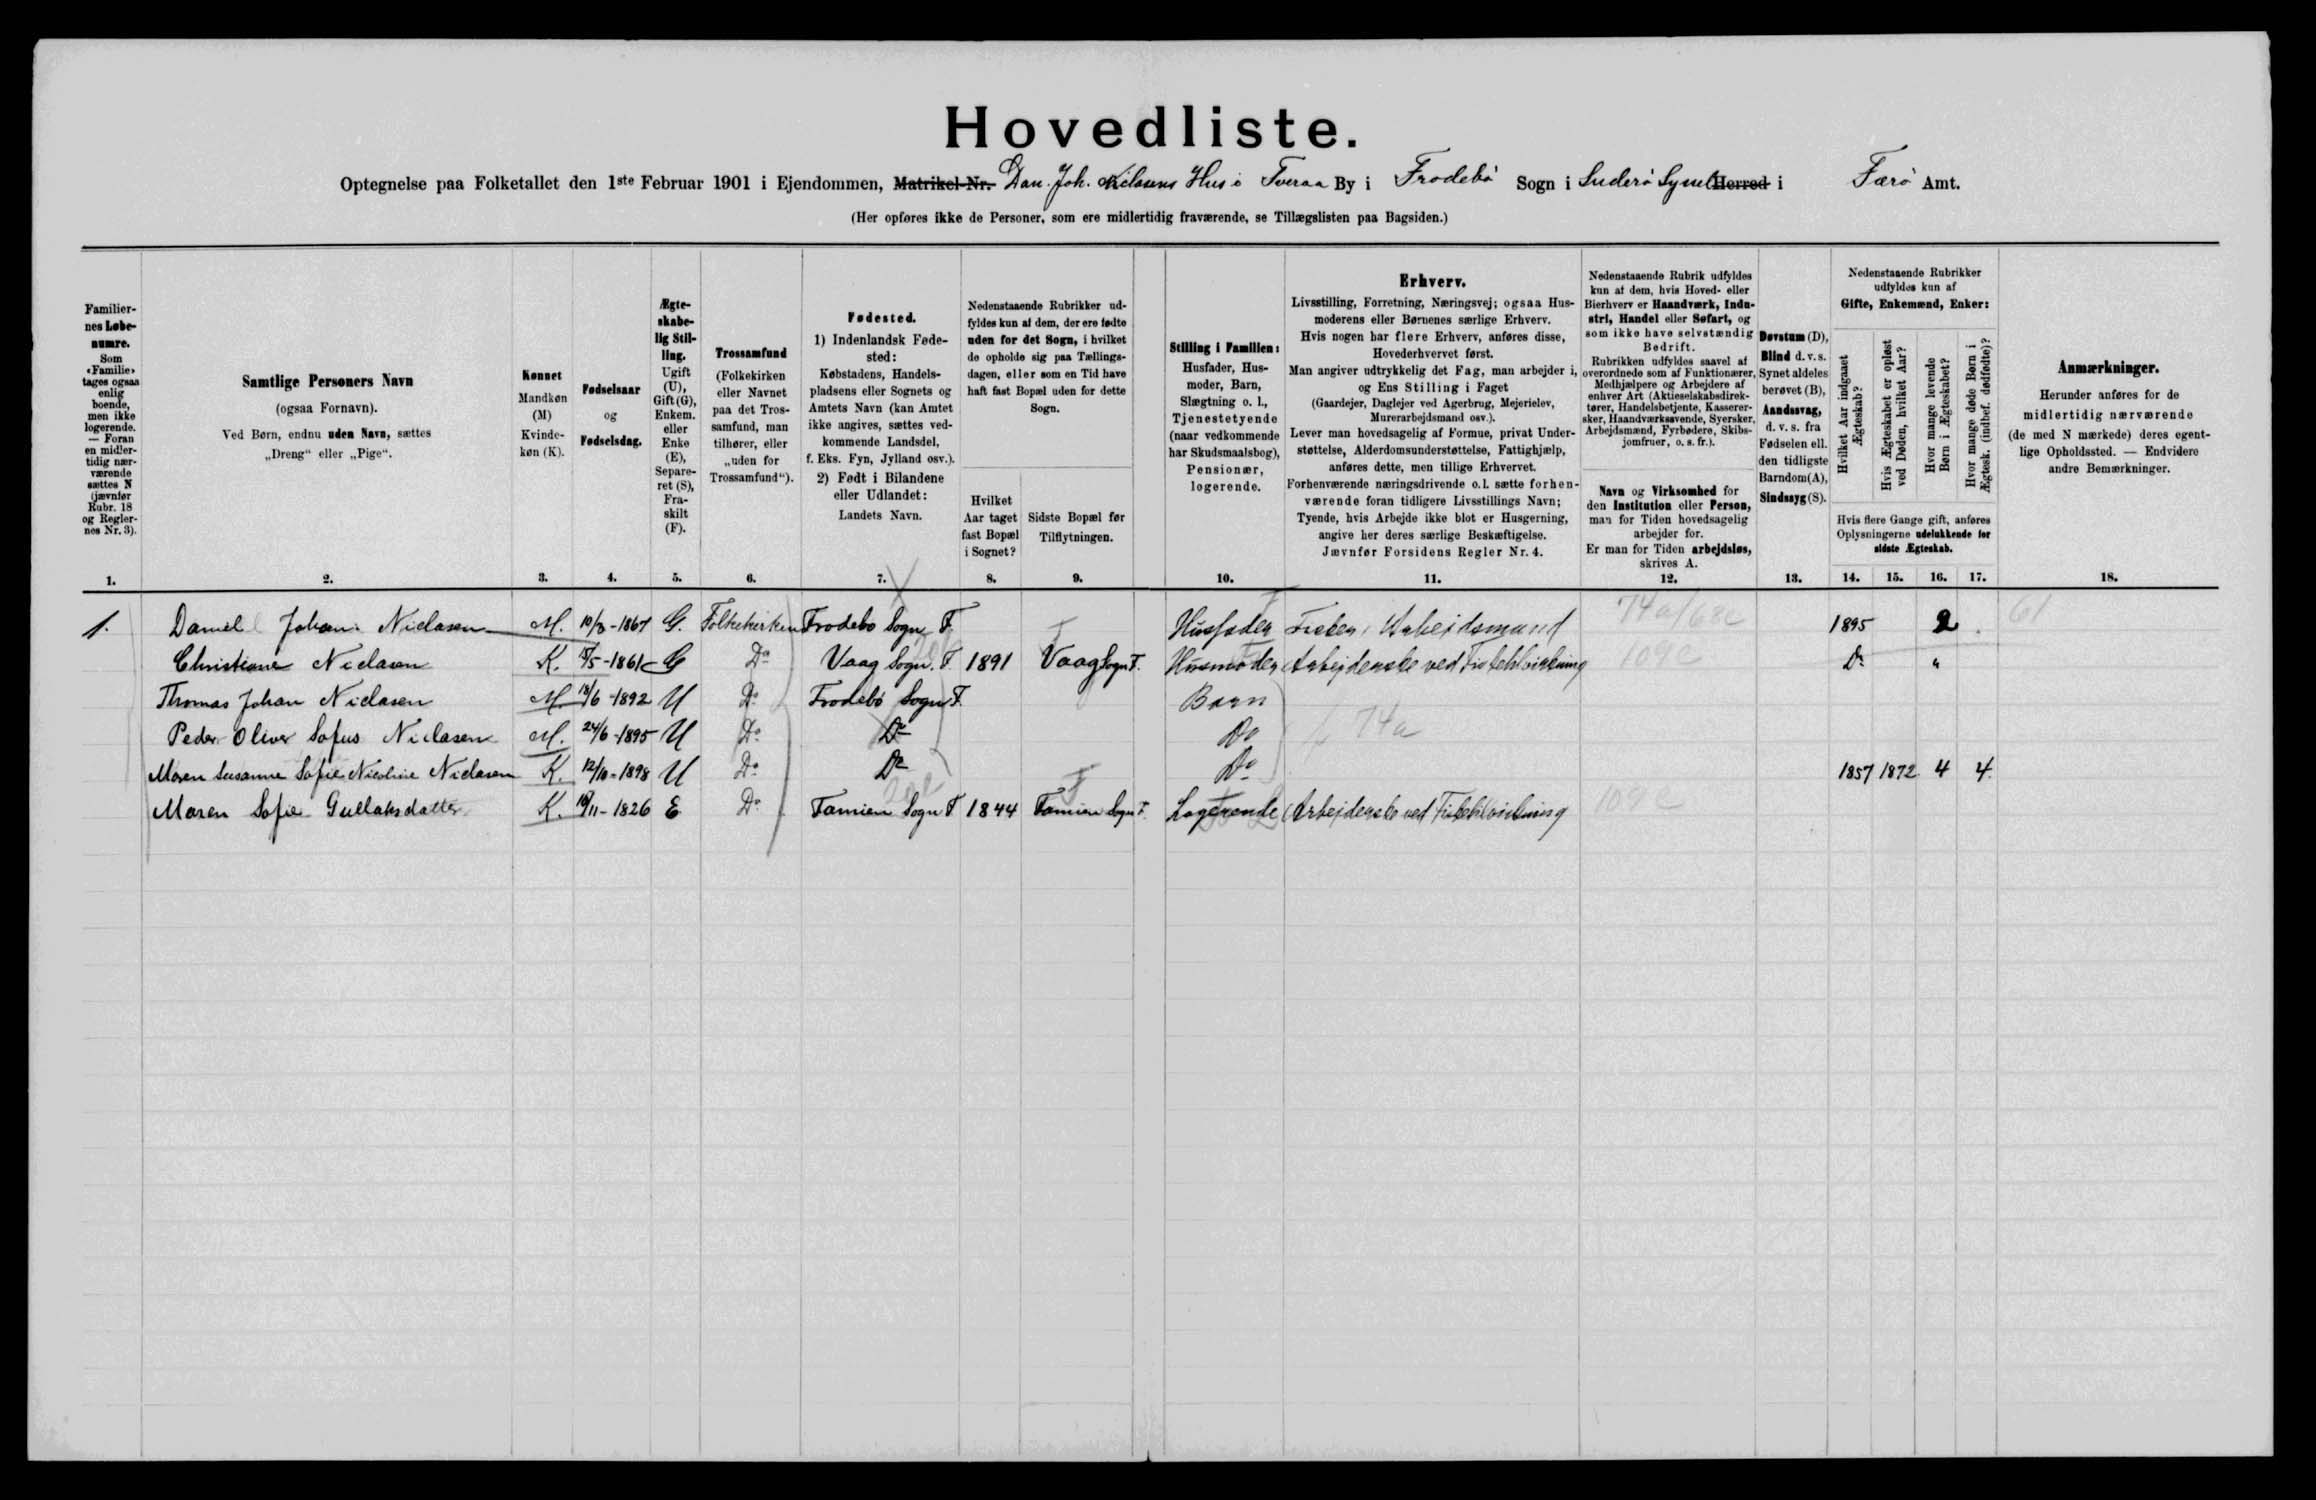 Hovedliste.
Optegnelse paa Folketallet den 1ste Februar 1901 i Ejendommen, Matrikel-Nr. Dan. Joh. Nilsens Hus i Tveraa By i Frodebø Sogn i Suderø Syssel Herred i Færø Amt.
(Her opføres ikke de Personer, som ere midlertidig fraværende, se Tillægslisten paa Bagsiden.)
Familiernes Løbenumre.
Som «Familie» tages ogsaa enlig boende, men ikke logerende. — Foran en midlertidig nærværende sættes N (jævnfør Rubr. 18 og Reglernes Nr. 3).
Samtlige Personers Navn
(ogsaa Fornavn).
Ved Børn, endnu uden Navn, sættes
„Dreng“ eller „Pige“.
Kønnet
Mandkøn (M)
Kvindekøn (K).
Fødselsaar
og
Fødselsdag.
Ægteskabelig Stilling.
Ugift (U), Gift (G), Enkem. eller Enke (E), Separeret (S), Fraskilt (F).
Trossamfund
(Folkekirken eller Navnet paa det Trossamfund, man tilhører, eller „uden for Trossamfund“).
Fødested.
1) Indenlandsk Fødested:
Købstadens, Handelspladsens eller Sognets og Amtets Navn (kan Amtet ikke angives, sættes vedkommende Landsdel, f. Eks. Fyn, Jylland osv.).
2) Født i Bilandene eller Udlandet:
Landets Navn.
Nedenstaaende Rubrikker udfyldes kun af dem, der ere fødte uden for det Sogn, i hvilket de opholde sig paa Tællingsdagen, eller som en Tid have haft fast Bopæl uden for dette Sogn.
Hvilket Aar taget fast Bopæl i Sognet?
Sidste Bopæl før Tilflytningen.
Stilling i Familien:
Husfader, Husmoder, Barn, Slægtning o. l., Tjenestetyende (naar vedkommende har Skudsmaalsbog), Pensionær, logerende.
Erhverv.
Livsstilling, Forretning, Næringsvej; ogsaa Husmoderens eller Børnenes særlige Erhverv.
Hvis nogen har flere Erhverv, anføres disse, Hovederhvervet først.
Man angiver udtrykkelig det Fag, man arbejder i, og Ens Stilling i Faget
(Gaardejer, Daglejer ved Agerbrug, Mejerielev, Murerarbejdsmand osv.).
Lever man hovedsagelig af Formue, privat Understøttelse, Alderdomsunderstøttelse, Fattighjælp, anføres dette, men tillige Erhvervet.
Forhenværende næringsdrivende o. l. sætte forhenværende foran tidligere Livsstillings Navn;
Tyende, hvis Arbejde ikke blot er Husgerning, angive her deres særlige Beskæftigelse.
Jævnfør Forsidens Regler Nr. 4.
Nedenstaaende Rubrik udfyldes kun af dem, hvis Hoved- eller Bierhverv er Haandværk, Industri, Handel eller Søfart, og som ikke have selvstændig Bedrift.
Rubrikken udfyldes saavel af overordnede som af Funktionærer, Medhjælpere og Arbejdere af enhver Art (Aktieselskabsdirektører, Handelsbetjente, Kasserersker, Haandværkssvende, Syersker, Arbejdsmænd, Fyrbødere, Skibsjomfruer, o. s. fr.).
Navn og Virksomhed for den Institution eller Person, man for Tiden hovedsagelig arbejder for.
Er man for Tiden arbejdsløs, skrives A.
Døvstum (D), Blind d. v. s. Synet aldeles berøvet (B), Aandssvag, d. v. s. fra Fødselen ell. den tidligste Barndom (A), Sindssyg (S).
Nedenstaaende Rubrikker udfyldes kun af Gifte, Enkemænd, Enker:
Hvilket Aar indgaaet Ægteskab?
Hvis Ægteskabet er opløst ved Døden, hvilket Aar?
Hvor mange levende Børn i Ægteskabet?
Hvor mange døde Børn i Ægtesk. (indbef. dødfødte)?
Hvis flere Gange gift, anføres Oplysningerne udelukkende for sidste Ægteskab.
Anmærkninger.
Herunder anføres for de midlertidig nærværende (de med N mærkede) deres egentlige Opholdssted. — Endvidere andre Bemærkninger.
1. 2. 3. 4. 5. 6. 7. 8. 9. 10. 11. 12. 13. 14. 15. 16. 17. 18.
1. Daniel Johan Niclasen M. 10/3-1867 G. Folkekirken Frodebø Sogn F. Husfader Fisker, Arbejdsmand 74a/68c 1895 2 61
Christiane Niclasen K. /5-1861 G Do Vaag Sogn. F 1891 Vaag Sogn F. Husmoder Arbejderske ved Fisketilvirkning 109c Do "
Thomas Johan Niclasen M. 18/6-1892 U Do Frodebø Sogn F. Barn
Peder Oliver Sofus Niclasen M. 24/6-1895 U Do Do Do 74a
Maren Susanne Sofie Nicoline Niclasen K. 12/10-1898 U Do Do Do 1857 1872 4 4.
Maren Sofie Gullaksdatter K. 19/11-1826 E Do Famien Sogn F 1844 Famien Sogn F. Logerende Arbejderske ved Fisketilvirkning 109c